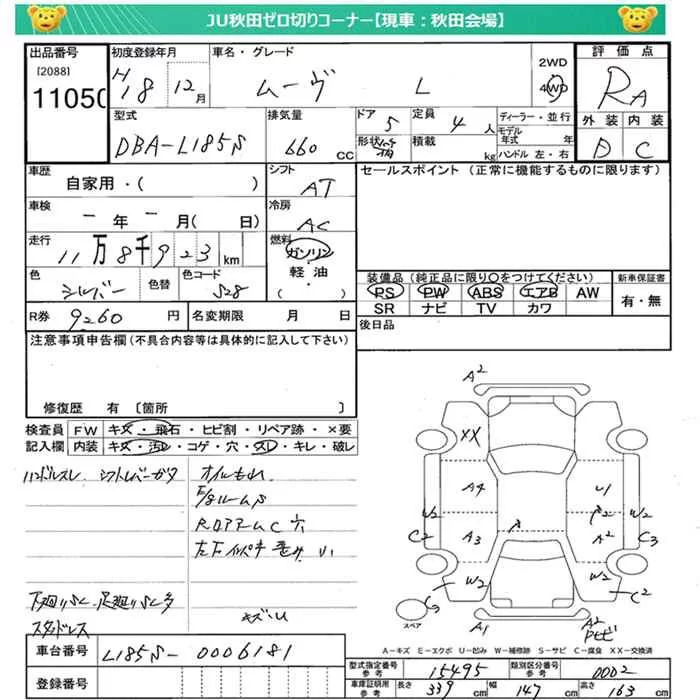 JU秋田ゼロ切りコーナー【現車：秋田会場】
出品番号 初度登録年月 車名・グレード 2WD 評価点
[2088] H18 12月 ムーヴ L 4WD RA
11050
外装 内装
D C
型式 排気量 ドア 定員 ディーラー・並行
DBA-L185S 660 CC 5 4人 モデル年式 年
形状 積載 kg ハンドル 左・右
車歴 シフト セールスポイント（正常に機能するものに限ります）
自家用・( ) AT
車検 冷房
ー年ー月( 日) AC
走行 燃料
11万8千923km ガソリン
軽油
( ・ )
色 色替 色コード
シルバー S28
装備品（純正品に限り○をつけてください） 新車保証書
PS PW ABS エアB AW 有・無
SR ナビ TV カワ
R券 9260 円 名変期限 月 日 後日品
注意事項申告欄（不具合内容等は具体的に記入して下さい）
修復歴 有 〔箇所 〕
検査員 FW キズ・飛石・ヒビ割・リペア跡・×要
記入欄 内装 キズ・汚レ・コゲ・穴・スレ・キレ・破レ
ハンドルスレ シフトレバーガタ オイルもれ
下廻りSC 足廻りSC多
スタッドレス キズ・U
A2
XX
A4 U1
W2 A3 A2 W2
C2 C3
W2 W2 C2
スペア A1 A2
A－キズ E－エクボ U－凹み W－補修跡 S－サビ C－腐食 XX－交換済
車台番号 L185S-0006181
登録番号
型式指定番号 参考 15495 類別区分番号 参考 0002
車庫証明用 参考 長さ 339 cm 幅 147 cm 高さ 163 cm